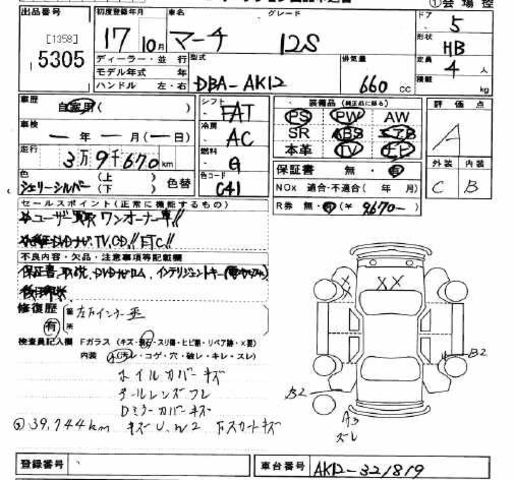 ①会場控
出品番号 初度登録年月 車名 グレード ドア 5
[1358] 5305 17 10月 マーチ 12S 形状 HB
ディーラー・並行 型式 排気量 定員 4 人
モデル年式 年 DBA-AK12 660 cc 積載 kg
ハンドル 左・右
車歴 自家用( ) シフト FAT 装備品(純正品に限る) 評価点
PS PW AW
車検 ー年ー月(ー日) 冷房 AC SR ABS エアB A
本革 TV
走行 3万9千670km 燃料 G 保証書 無・有 外装 内装
色 シェリーシルバー (上)(下) 色替 色コード C41 NOx 適合・不適合( 年 月) C B
R券 無・有(¥ 9670-)
セールスポイント(正常に機能するもの)
ユーザー買取 ワンオーナー車!!
DVDナビ、TV,CD,!! ETC!!
不具内容・欠品・注意事項等記載欄
保証書、取説、DVDナビロム、インテリジェントキー
修復歴 有 箇所 左方インナー歪
検査員記入欄 Fガラス(キズ・飛石・スリ傷・ヒビ割・リペア跡・X要)
内装 (汚レ・コゲ・穴・破レ・キレ・スレ)
ホイルカバーキズ
テールレンズワレ
Dミラーカバーキズ
39,744km キズU,W2 下スカートキズ
X X
B2
B2
A3
ズレ
登録番号 車台番号 AK12-321819